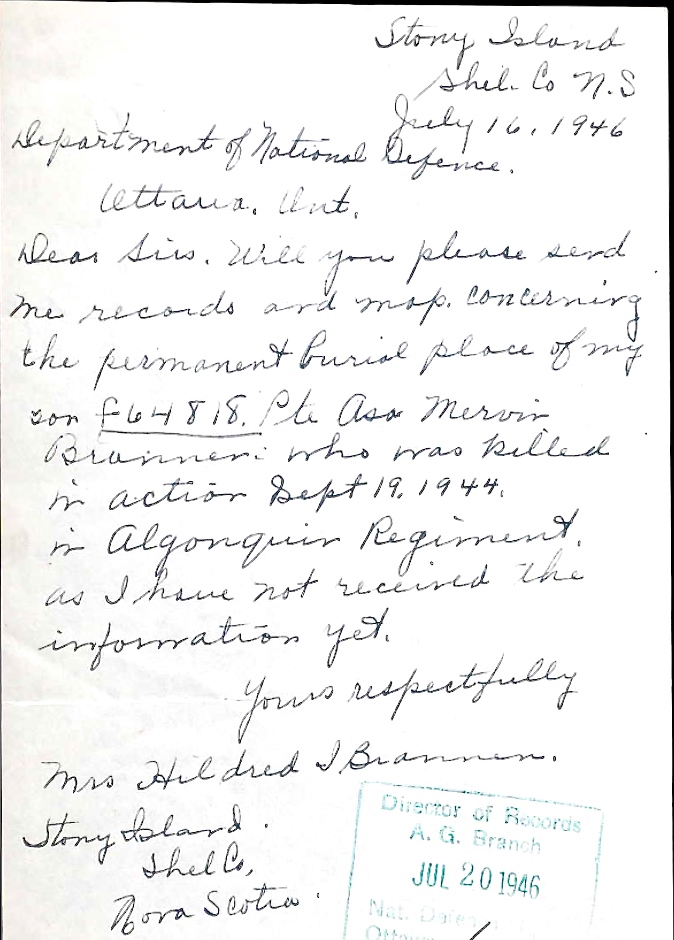 Stony Island
Shel. Co N.S
July 16, 1946
Department of National Defence.
Ottawa. Ont.
Dear Sirs. Will you please send
me records and map. concerning
the permanent burial place of my
son F64818. Pte Asa Mervin
Brannen. who was killed
in action Sept 19, 1944.
in Algonquin Regiment.
as I have not received the
information yet.
Yours respectfully
Mrs Hildred I Brannen.
Stony Island.
Shel Co,
Nova Scotia.
Director of Records
A. G. Branch
JUL 20 1946
Nat. Defen
Ottawa